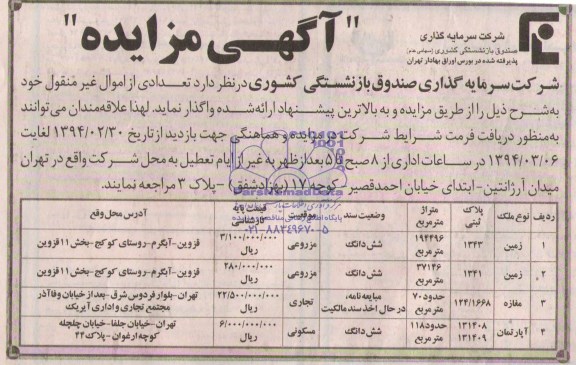 شرکت سرمایه گذاری
صندوق بازنشستگی کشوری (سهامی عام)
پذیرفته شده در بورس اوراق بهادار تهران
"آگهی مزایده"
شرکت سرمایه گذاری صندوق بازنشستگی کشوری در نظر دارد تعدادی از اموال غیر منقول خود
به شرح ذیل را از طریق مزایده و به بالاترین پیشنهاد ارائه شده واگذار نماید. لهذا علاقه مندان می توانند
به منظور دریافت فرمت شرایط شرکت در مزایده و هماهنگی جهت بازدید از تاریخ ۱۳۹۴/۰۲/۳۰ لغایت
۱۳۹۴/۰۳/۰۶ در ساعات اداری از ۸ صبح تا ۵ بعد از ظهر به غیر از ایام تعطیل به محل شرکت واقع در تهران
میدان آرژانتین - ابتدای خیابان احمد قصیر - کوچه ۱۷ (بهزاد شفق) - پلاک ۳ مراجعه نمایند.
ردیف نوع ملک پلاک ثبتی متراژ مترمربع وضعیت سند موقعیت قیمت پایه کارشناسی آدرس محل وقع
۱ زمین ۱۳۴۳ ۱۹۴۴۹۶ مترمربع شش دانگ مزروعی ۳/۱۰۰/۰۰۰/۰۰۰ ریال قزوین - آبگرم - روستای کوکج - بخش ۱۱ قزوین
۲ زمین ۱۳۴۱ ۳۷۱۴۶ مترمربع شش دانگ مزروعی ۲۸۰/۰۰۰/۰۰۰ ریال قزوین - آبگرم - روستای کوکج - بخش ۱۱ قزوین
۳ مغازه ۱۲۴/۱۶۶۸ حدود ۷۰ مترمربع مبایعه نامه، در حال اخذ سند مالکیت تجاری ۲۲/۵۰۰/۰۰۰/۰۰۰ ریال تهران - بلوار فردوس شرق - بعد از خیابان وفا آذر مجتمع تجاری و اداری آیریک
۴ آپارتمان ۱۳۱۴۰۸ ۱۳۱۴۰۹ حدود ۱۱۸ مترمربع شش دانگ مسکونی ۶/۰۰۰/۰۰۰/۰۰۰ ریال تهران - خیابان جلفا - خیابان چلچله کوچه ارغوان - پلاک ۴۴
پایگاه اطلاع رسانی
۰۲۱-۸۸۳۴۹۶۷۰-۵